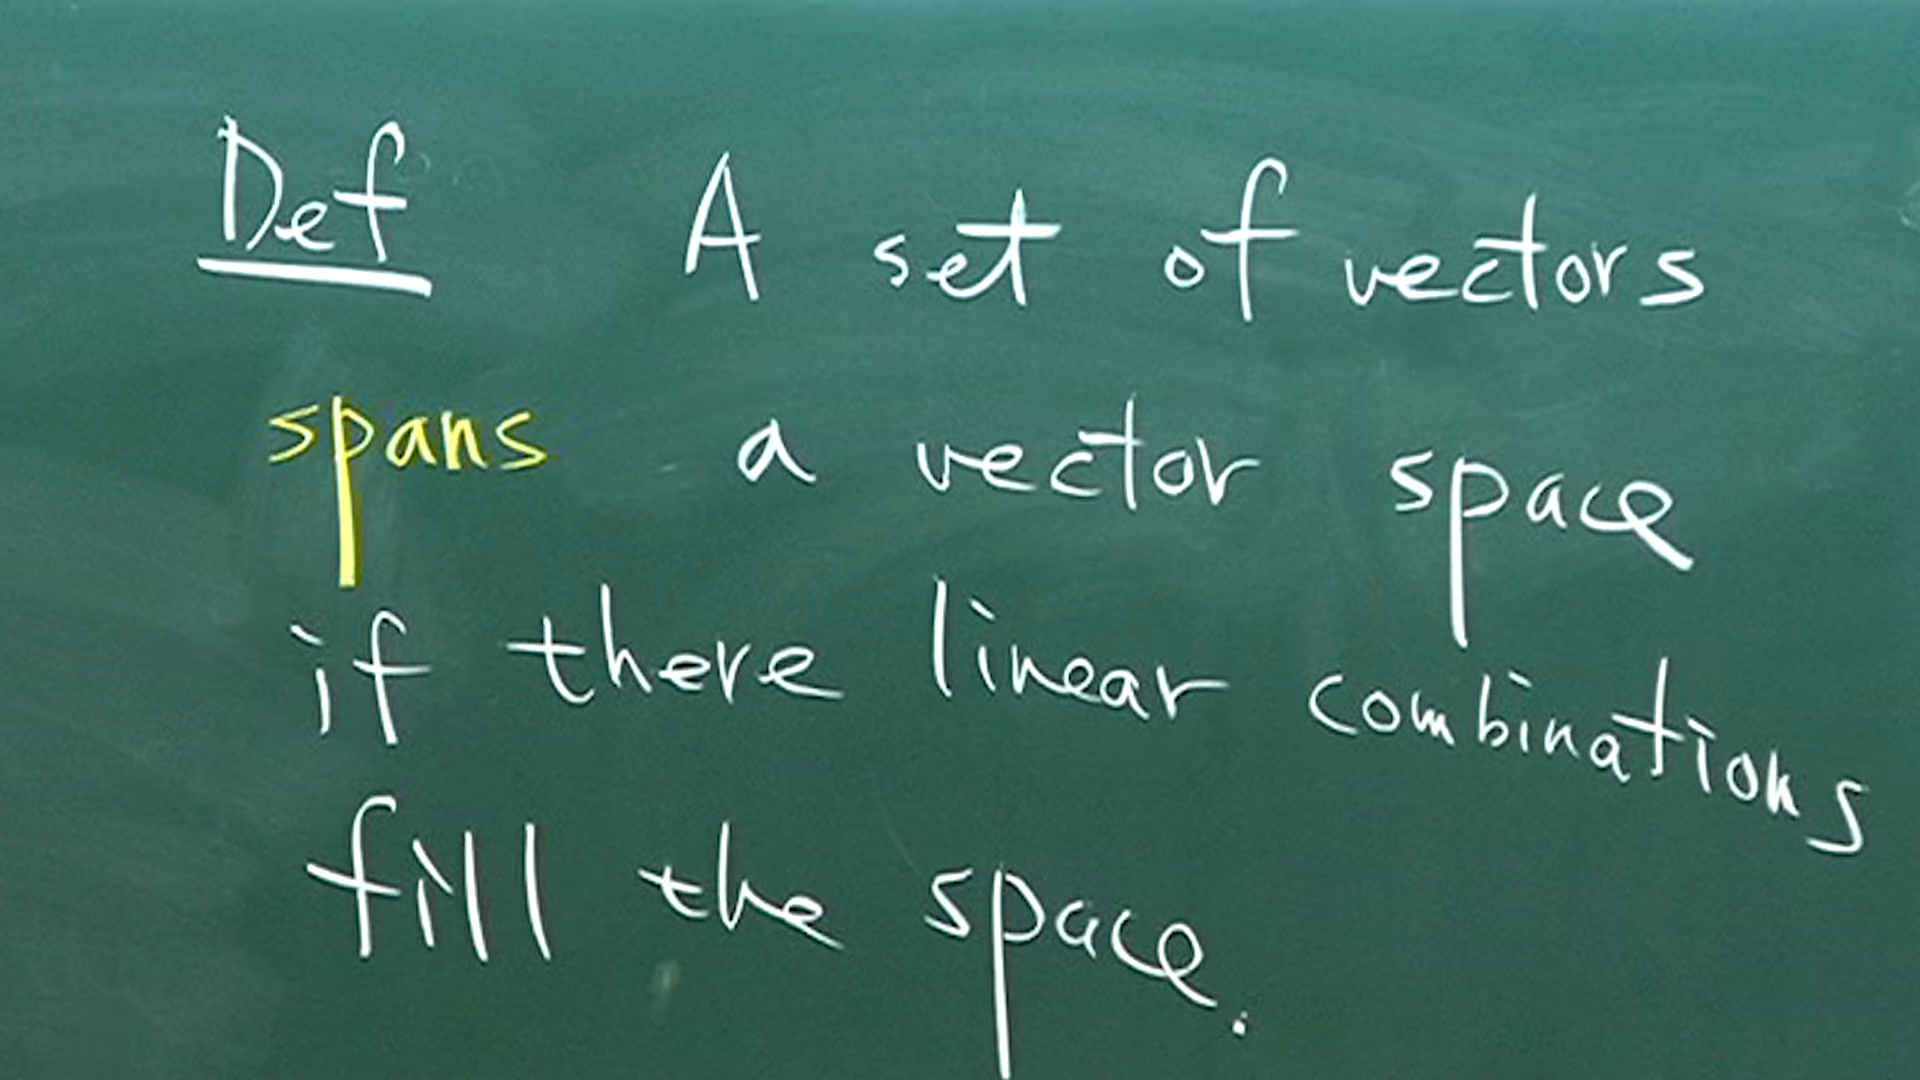 Def A set of vectors
spans a vector space
if there linear combinations
fill the space.